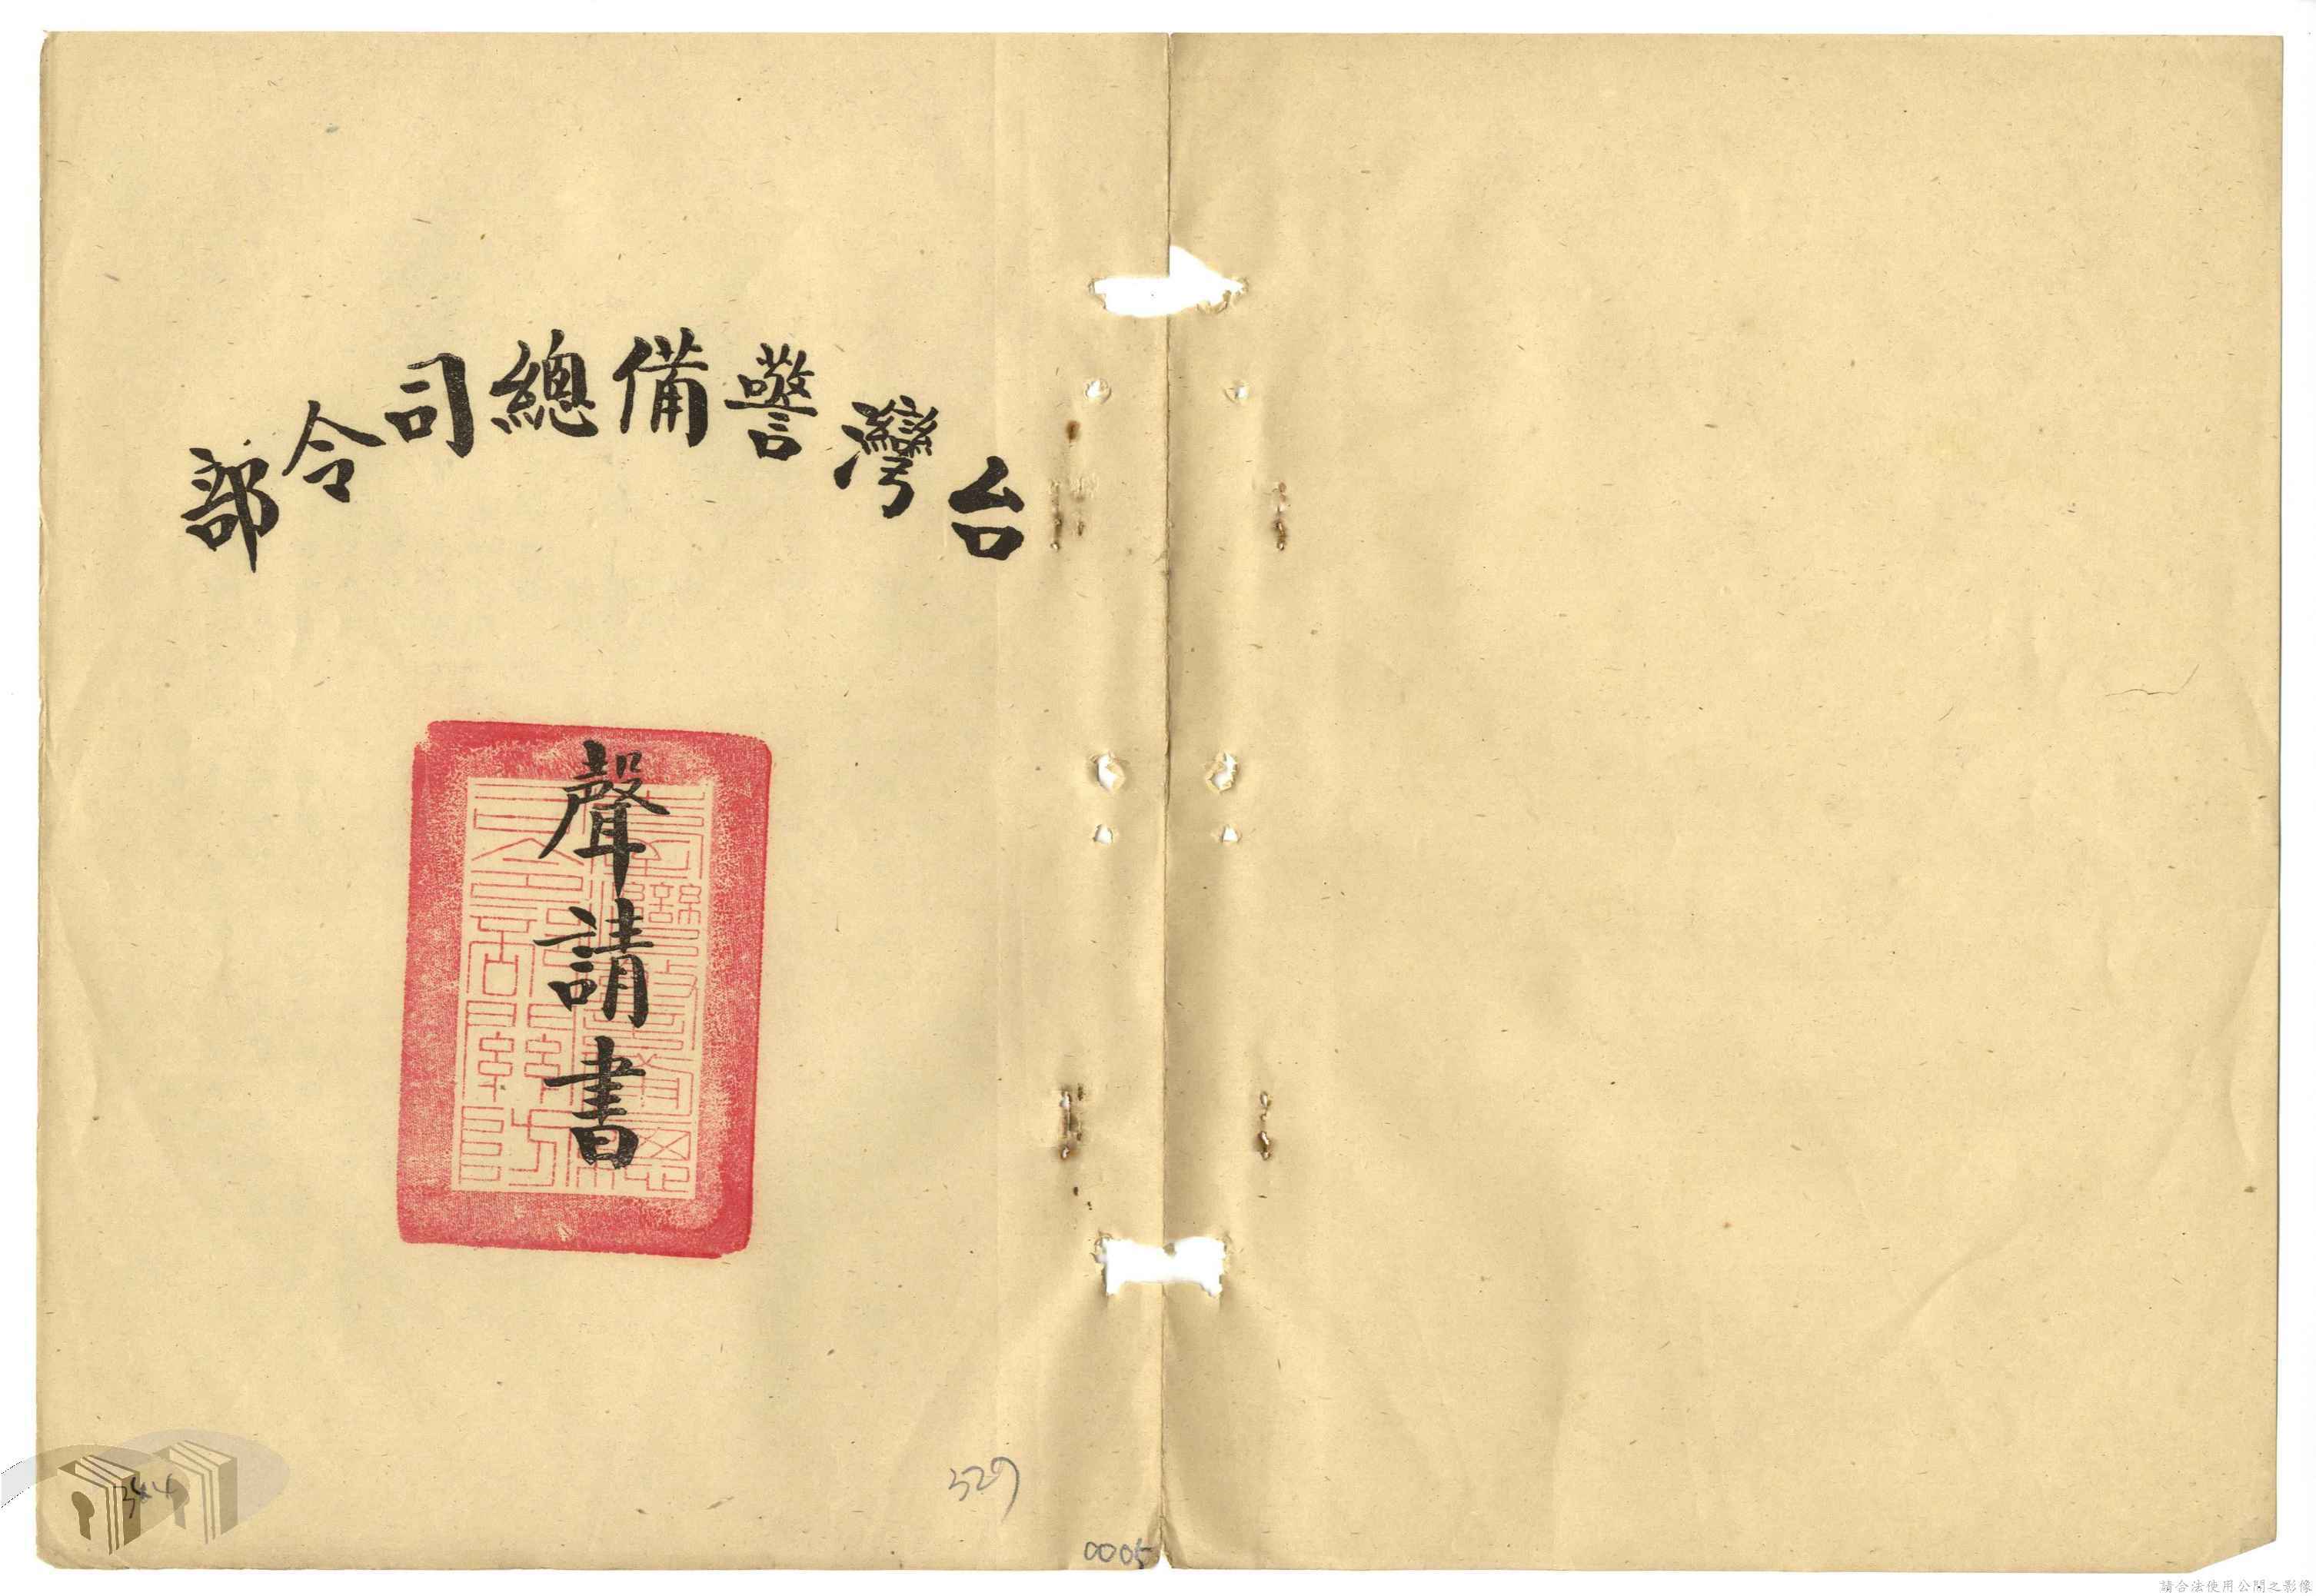 台灣警備總司令部
聲請書
329
0005
請合法使用公開之影像